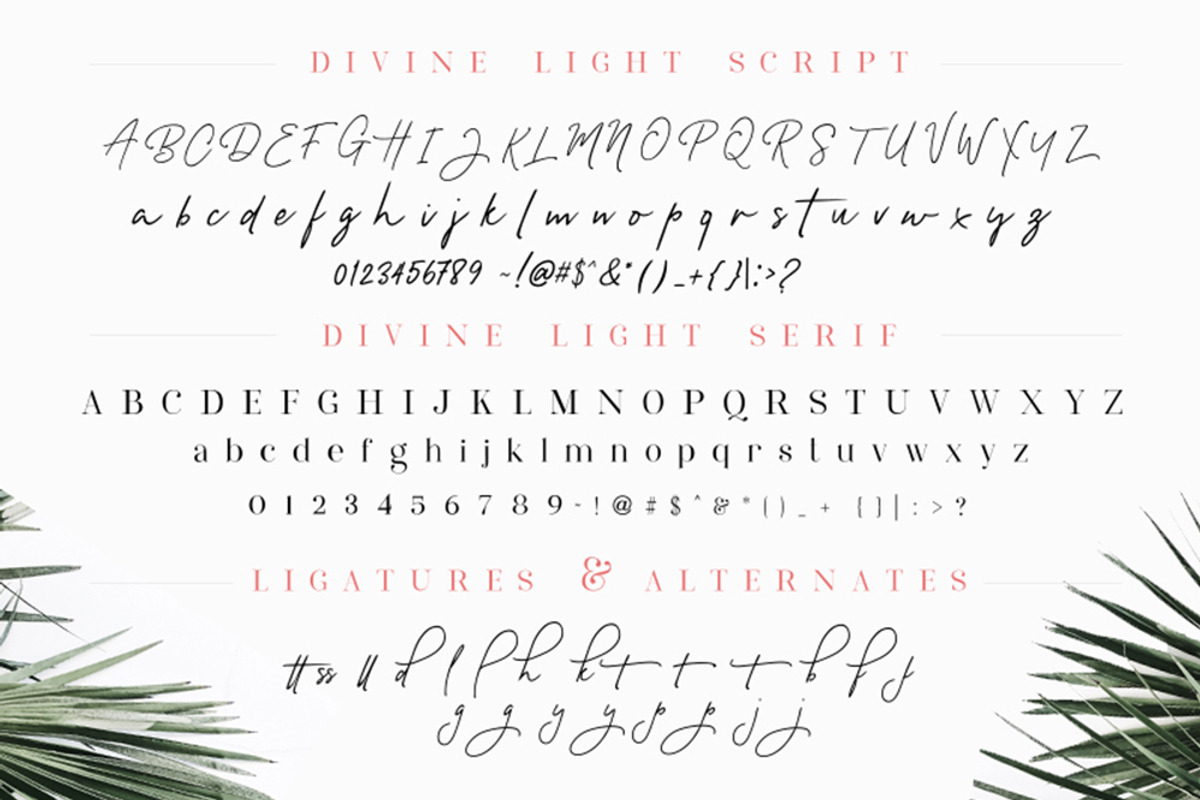 DIVINE LIGHT SCRIPT
A B C D E F G H I J K L M N O P Q R S T U V W X Y Z
a b c d e f g h i j k l m n o p q r s t u v w x y z
0123456789 ~!@#$^&*()_+{}|:>?
DIVINE LIGHT SERIF
A B C D E F G H I J K L M N O P Q R S T U V W X Y Z
a b c d e f g h i j k l m n o p q r s t u v w x y z
0 1 2 3 4 5 6 7 8 9 ~ ! @ # $ ^ & * ( ) _ + { } | : > ?
LIGATURES & ALTERNATES
tt ss ll d l f h k t t t b f j
g g y y p p j j